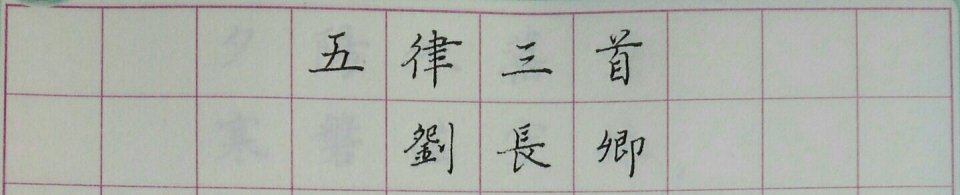 五律三首
劉長卿